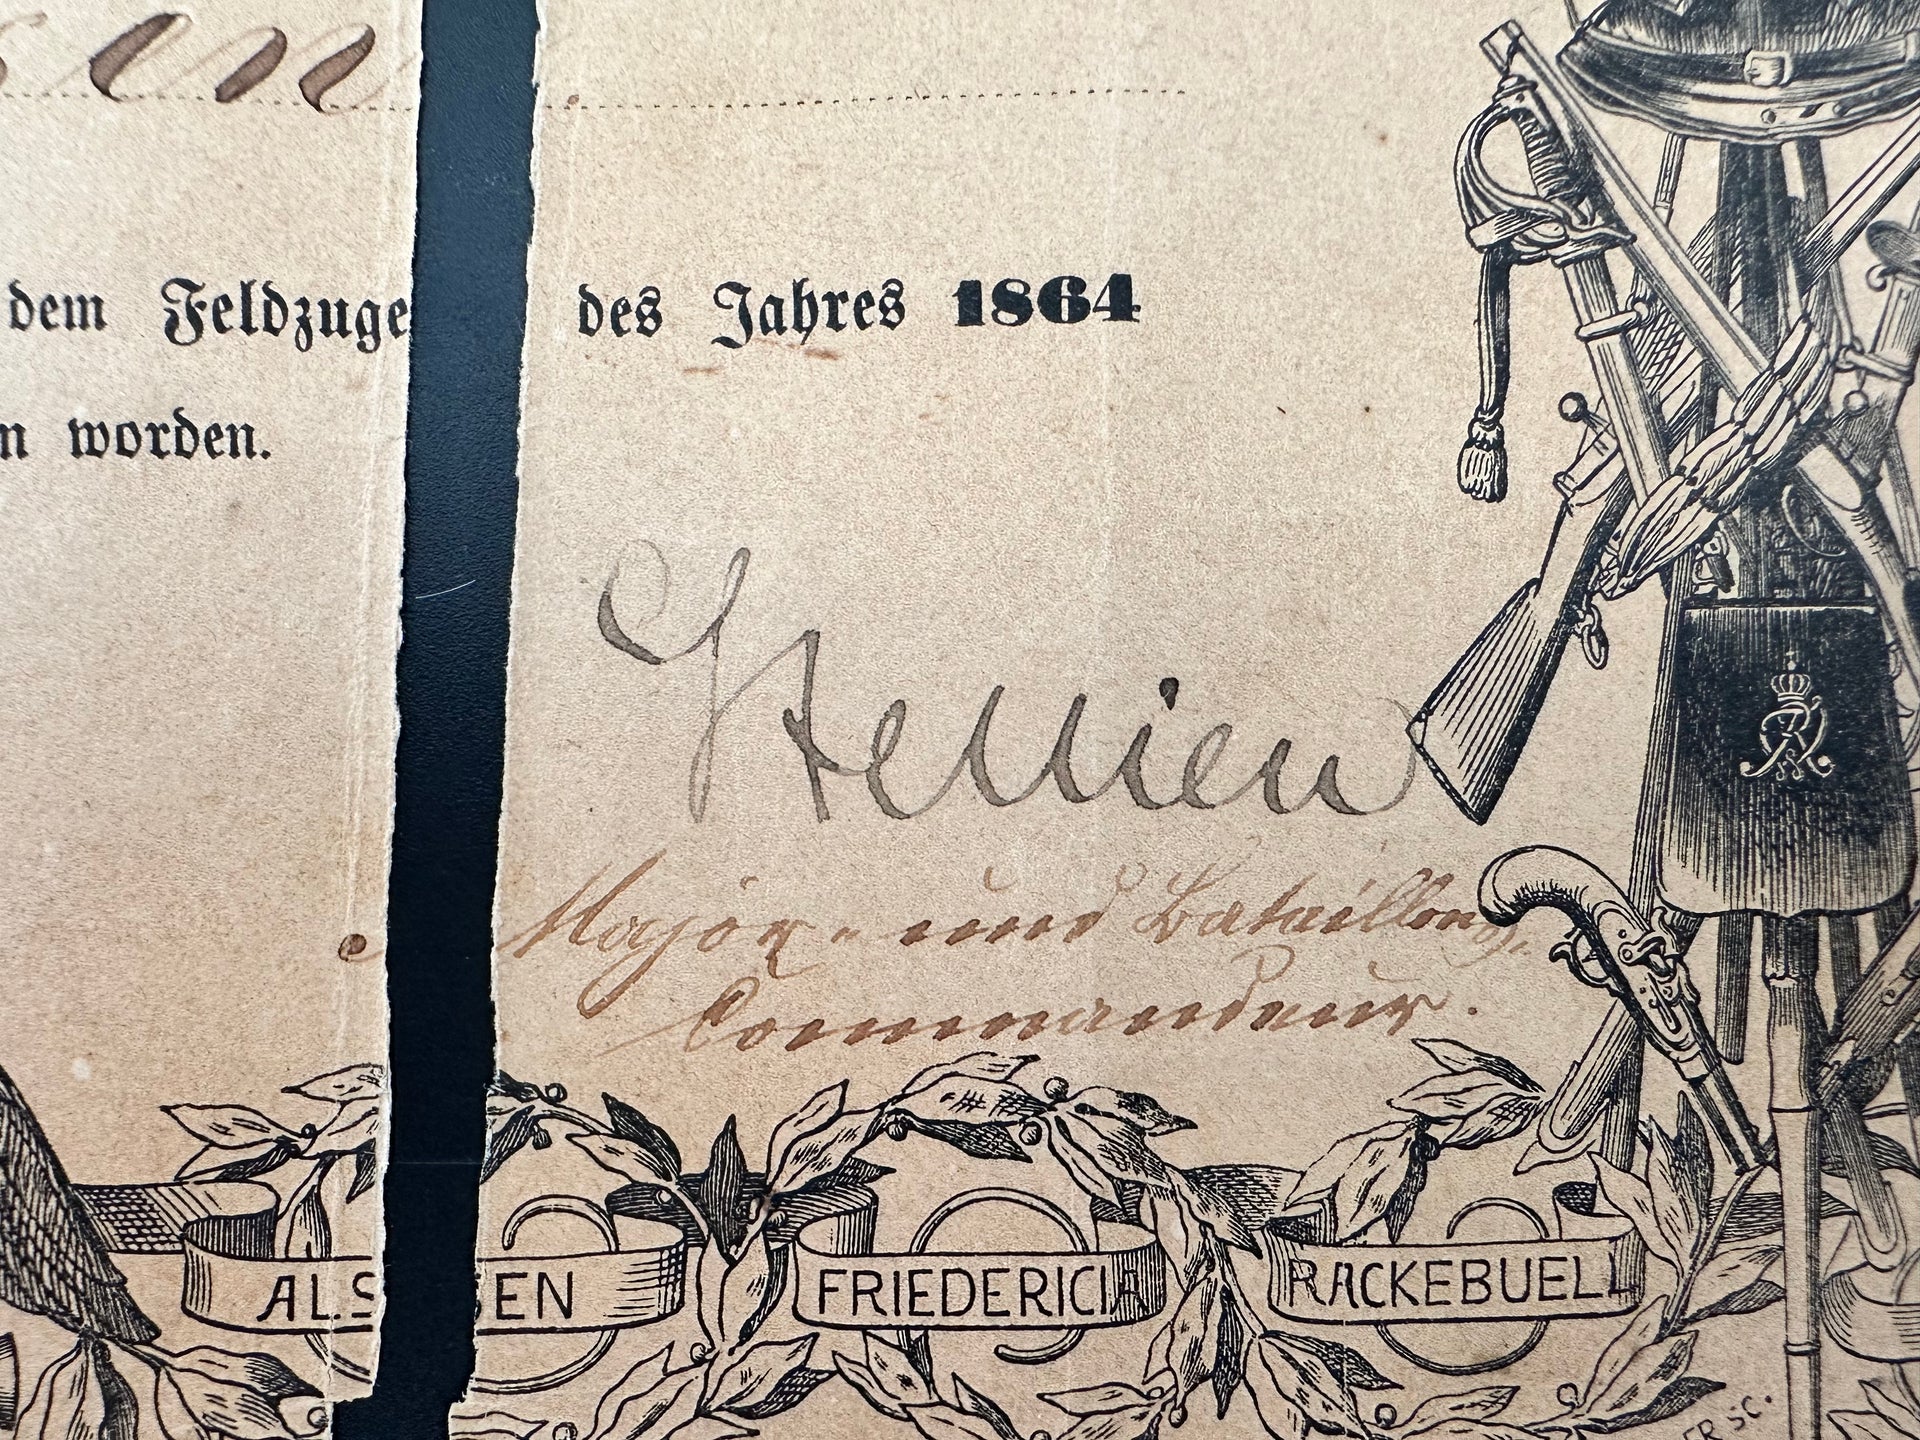 en
dem Feldzuge des Jahres 1864
n worden.
Major- und Bataillons-
Commandeur.
ALSEN FRIEDERICIA RACKEBUELL
ER SC.